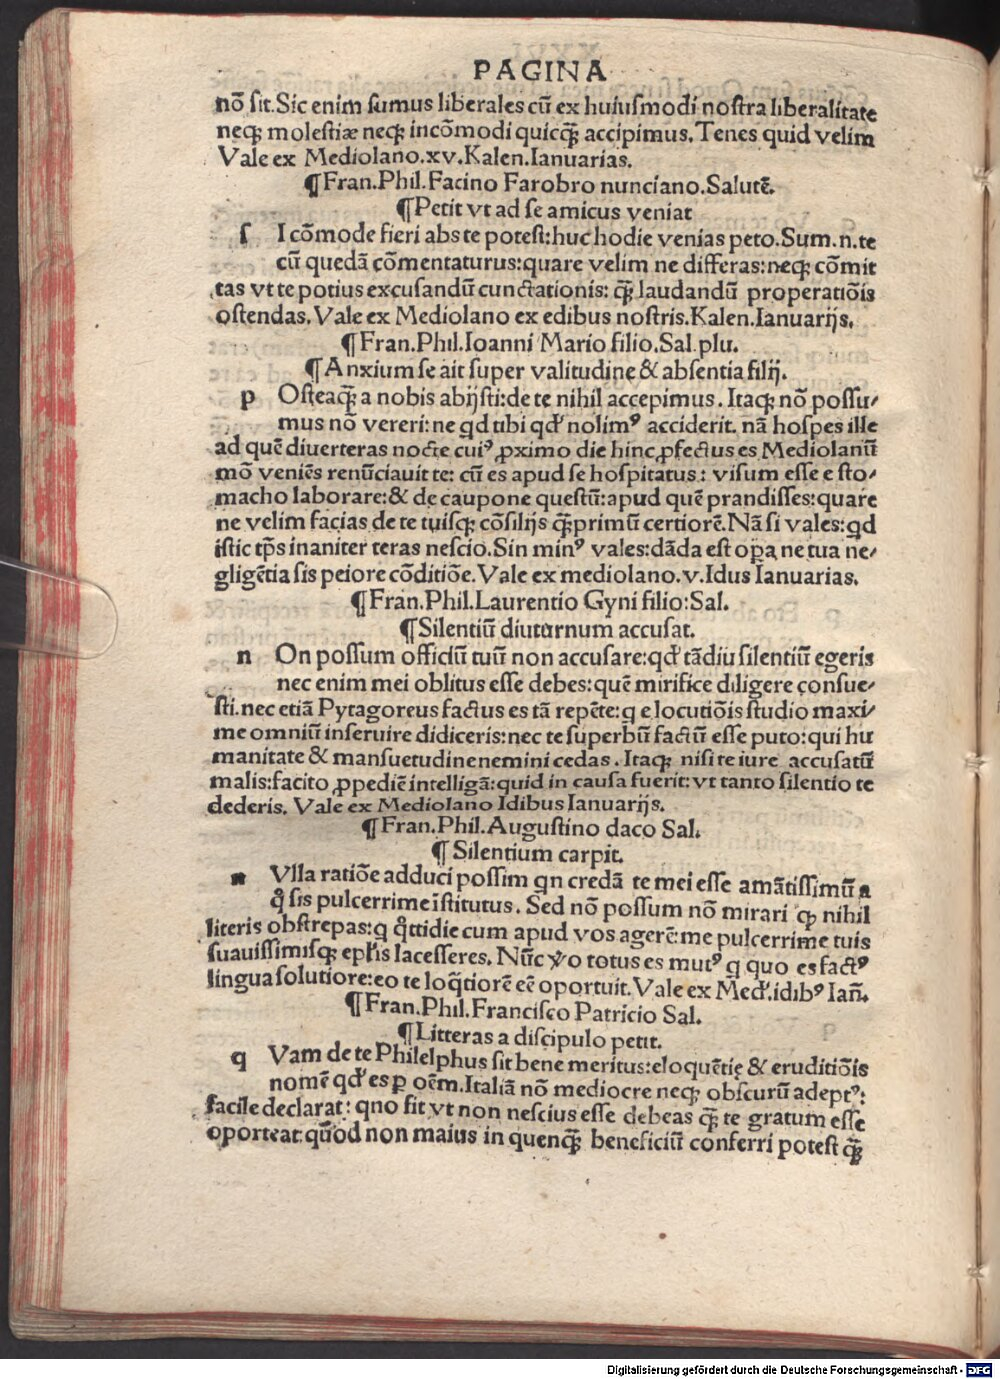 PAGINA
nō sit. Sic enim sumus liberales cū ex huiusmodi nostra liberalitate
neqꝫ molestiæ neqꝫ incōmodi quicqꝫ̄ accipimus. Tenes quid velim
Vale ex Mediolano. xv. Kalen. Ianuarias.
¶Fran. Phil. Facino Farobro nunciano. Salutē.
¶Petit vt ad se amicus veniat
ſ I cōmode fieri abs te potest: huc hodie venias peto. Sum. n. te
cū quedā cōmentaturus: quare velim ne differas: neqꝫ cōmit
tas vt te potius excusandū cunctationis: qꝫ̄ laudandū properatiōis
ostendas. Vale ex Mediolano ex edibus nostris. Kalen. Ianuarijs.
¶Fran. Phil. Ioanni Mario filio. Sal. plu.
¶Anxium se ait super valitudine & absentia filij.
p Osteaqꝫ̄ a nobis abijsti: de te nihil accepimus. Itaqꝫ nō possu/
mus nō vereri: ne qd tibi qd' nolimꝰ acciderit. nā hospes ille
ad quē diuerteras nocte cuiꝰ ꝓximo die hinc ꝓfectus es Mediolanū
mō veniēs renūciauit te: cū es apud se hospitatus: visum esse e sto/
macho laborare: & de caupone questū: apud quē prandisses: quare
ne velim facias de te tuisqꝫ cōsilijs qꝫ̄primū certiorē. Nā si vales: qd
istic tp̄s inaniter teras nescio. Sin minꝰ vales: dāda est oꝑa ne tua ne/
gligētia sis peiore cōditiōe. Vale ex mediolano. v. Idus Ianuarias.
¶Fran. Phil. Laurentio Gyni filio: Sal.
¶Silentiū diuturnum accusat.
n On possum officiū tuū non accusare: qd' tādiu silentiū egeris
nec enim mei oblitus esse debes: quē mirifice diligere consue/
sti. nec etiā Pytagoreus factus es tā repēte: q elocutiōis studio maxi/
me omniū inseruire didiceris: nec te superbū factū esse puto: qui hu
manitate & mansuetudine nemini cedas. Itaqꝫ nisi te iure accusatū
malis: facito ꝓpediē intelligā: quid in causa fuerit: vt tanto silentio te
dederis. Vale ex Mediolano Idibus Ianuarijs.
¶Fran. Phil. Augustino daco Sal.
¶Silentium carpit.
n Vlla ratiōe adduci possim qn credā te mei esse amātissimū a
q̊ sis pulcerrime īstitutus. Sed nō possum nō mirari ꝙ nihil
literis obstrepas: q q̊ttidie cum apud vos agerē: me pulcerrime tuis
suauissimisqꝫ epl'is lacesseres. Nūc ꝟo totus es mutꝰ q quo es factꝰ
lingua solutiore: eo te loq̄tiorē eē oportuit. Vale ex Med'. idibꝰ Iañ.
¶Fran. Phil. Francisco Patricio Sal.
¶Litteras a discipulo petit.
q Vam de te Philelphus sit bene meritus: eloquētię & eruditiōis
nomē qd' es ꝑ oēm. Italiā nō mediocre neqꝫ obscurū adeptꝰ:
facile declarat: qno fit vt non nescius esse debeas qꝫ̄ te gratum esse
oporteat: quod non maius in quenqꝫ̄ beneficiū conferri potest qꝫ̄
Digitalisierung gefördert durch die Deutsche Forschungsgemeinschaft - DFG